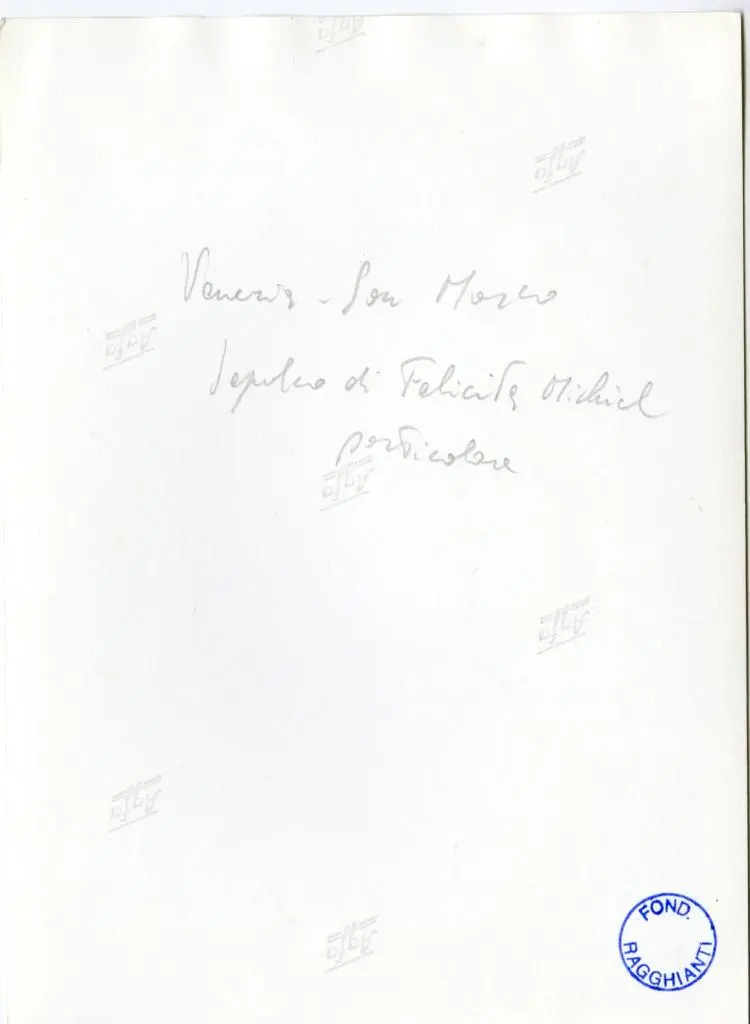 Agfa
Agfa
Venezia - San Marco
Agfa
Sepolcro di Felicita Michiel
particolare
Agfa
Agfa
Agfa
FOND.
RAGGHIANTI
Agfa